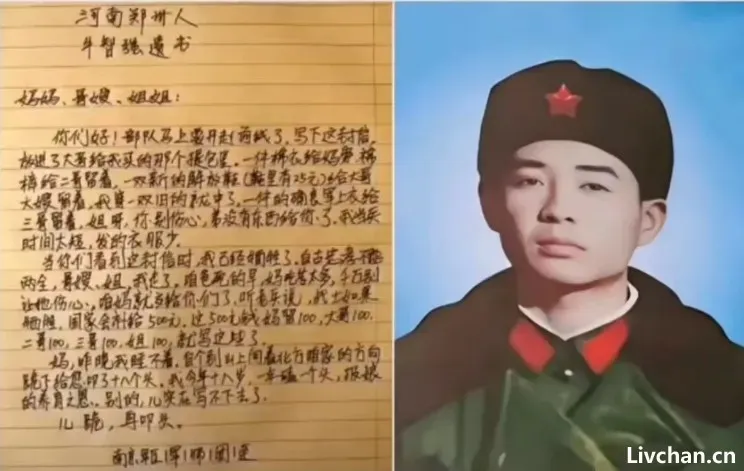 河南郑州人
牛智强遗书
妈妈、哥嫂、姐姐:
你们好!部队马上要开赴前线了,写下这封信,
放进了大哥给我买的那个提包里。一件棉衣给妈穿,棉
裤给二哥留着,一双新的解放鞋(鞋里有25元)给大哥
大嫂留着,我穿一双旧的就中了,一件的确良军上衣给
三哥留着,姐呀,你别伤心,弟没有东西给你了,我当兵
时间太短,发的衣服少。
当你们看到这封信时,我已经牺牲了。自古忠孝不能
两全,哥嫂、姐,我走了,咱爸死的早,妈吃苦太多,千万别
让她伤心,咱妈就交给你们了,听老兵说,战士如果
牺牲,国家会补给500元,这500元钱妈留100,大哥100,
二哥100,三哥100,姐100,就写这些了。
妈,昨晚我睡不着,在个别山上向着北方咱家的方向
跪下给您叩了十八个头。我今年十八岁,一年磕一个头,报娘
的养育之恩。别的,儿实在写不下去了。
儿 跪,再叩头。
军 师 团 连
Livchan.cn